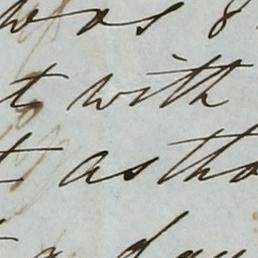 was 8
t with
t astho
a day